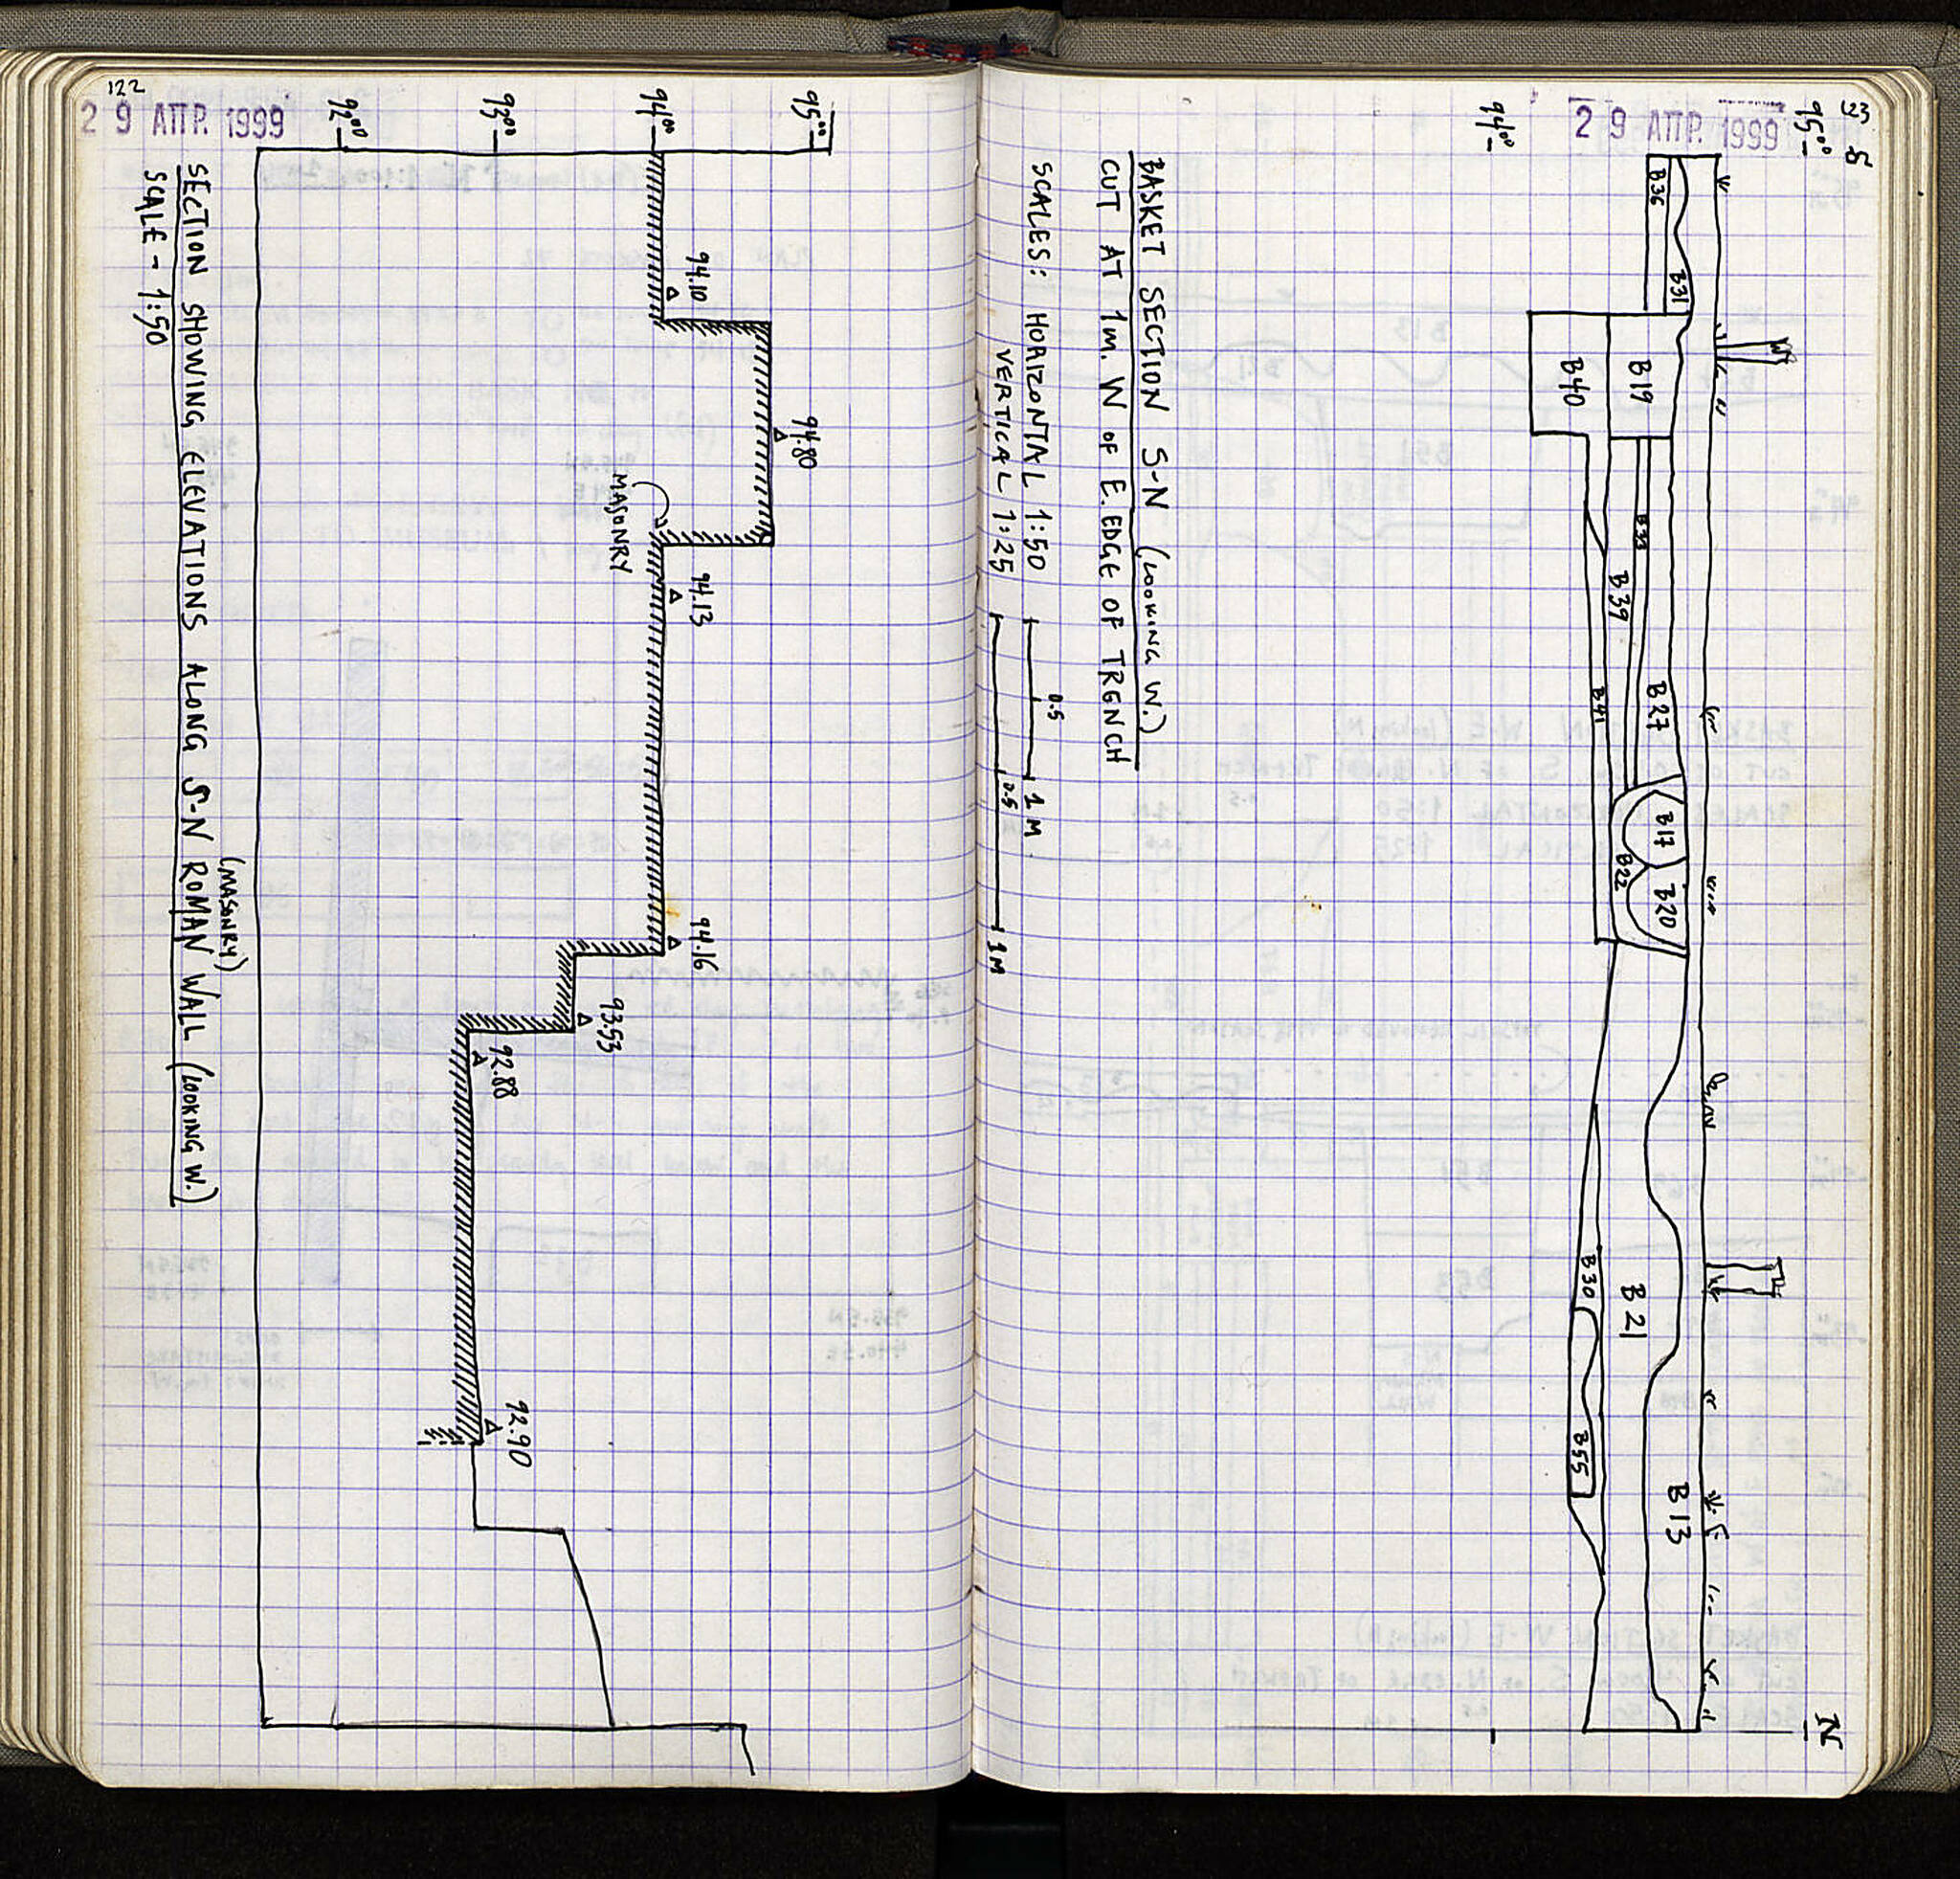 122
29 ΑΠΡ. 1999
92.00
93.00
94.00
95.00
94.10
94.80
MASONRY
94.13
94.16
93.53
92.88
92.90
(MASONRY)
SECTION SHOWING ELEVATIONS ALONG S-N ROMAN WALL (LOOKING W.)
SCALE - 1:50
123
29 ΑΠΡ. 1999
S
N
95.00
94.00
B36
B31
B19
B40
B33
B39
B41
B27
B17
B20
B22
B30
B21
B55
B13
BASKET SECTION S-N (LOOKING W.)
CUT AT 1m. W OF E. EDGE OF TRENCH
SCALES: HORIZONTAL 1:50
0.5
1 M
VERTICAL 1:25
0.5
1M